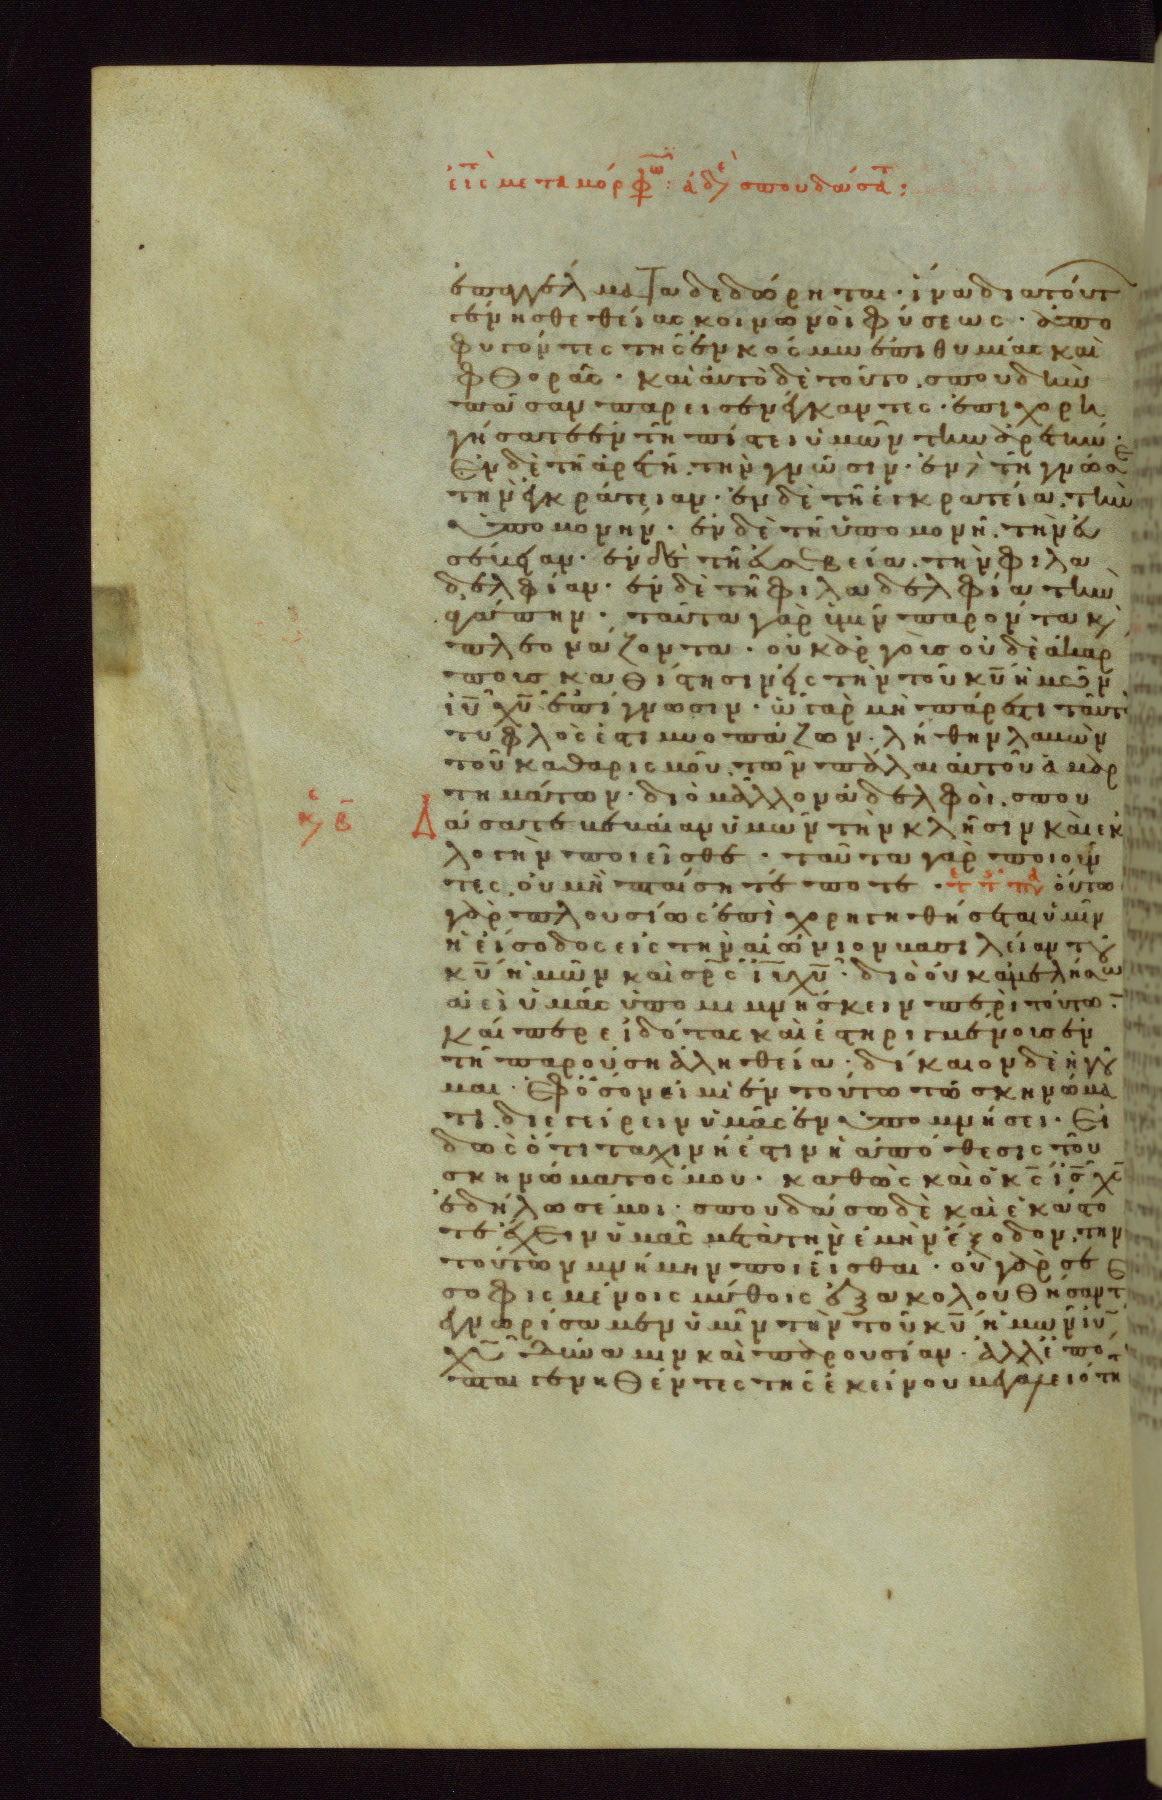 εἰς μεταμόρφω: ἀδελ σπουδάσατ:
ἐπαγγέλματα δεδώρηται· ἵνα διατούτ
γένησθε θείας κοινωνοὶ φύσεως· ἀπο
φυγόντες τῆς ἐν κόσμω ἐπιθυμίας καὶ
φθορᾶς· καὶ ἀυτὸ δὲ τοῦτο. σπουδὴν
πᾶσαν παρεισενέγκαντες· ἐπιχορη
γήσατε ἐν τῆ πίστει ὑμῶν τὴν ἀρετήν·
Ἐν δὲ τῆ ἀρετῆ. τὴν γνῶσιν· ἐν δὲ τῆ γνώσε
τὴν ἐγκράτειαν· ἐν δὲ τῆ ἐγκρατεία. τὴν
ὑπομονήν· ἐν δὲ τῆ ὑπομονῆ. τὴν ἐυ
σέβειαν· ἐν δὲ τῆ ἐυσεβεία. τὴν φιλα
δελφίαν· ἐν δὲ τῆ φιλαδελφία τὴν
ἀγάπην· ταῦτα γὰρ ὑμῖν παρόντα κ
πλεονάζοντα· οὐκ ἀργοὺσ οὐδὲ ἀκαρ
πουσ καθίστησιν εἰς τὴν τοῦ κυ ἡμῶν
ιυ χυ ἐπίγνωσιν· ὧ γὰρ μὴ πάρεστι ταῦτ
τυφλός ἐστι μυοπάζων· λήθην λαβὼν
τοῦ καθαρισμοῦ. τῶν πάλαι ἀυτοῦ ἁμαρ
τημάτων· διὸ μᾶλλον ἀδελφοὶ. σπου
κ β Δάσατε βεβαίαν ὑμῶν τὴν κλῆσιν καὶ ἐκ
λογὴν ποιεῖσθε· ταῦτα γὰρ ποιοῦν
τες. οὐ μὴ πταίσητέ ποτε· οὕτω
γὰρ πλουσίως ἐπιχορηγηθήσεται ὑμῖν
ἡ εἴσοδος εἰς τὴν αἰώνιον βασιλείαν τοῦ
κυ ἡμῶν καὶ σρς ιυ χυ· διὸ οὐκ ἀμελήσω
ἀεὶ ὑμᾶς ὑπομιμνήσκειν περὶ τούτω·
καίπερ εἰδότας καὶ ἐστηριγμένους ἐν
τῆ παρούση ἀληθεία· δίκαιον δὲ ἡγοῦ
μαι· ἐφ ὅσον εἰμὶ ἐν τούτω τῶ σκηνώμα
τι. διεγείρειν ὑμᾶς ἐν ὑπομνήσει· εἰ
δὼς ὅτι ταχινή ἐστιν ἡ ἀπόθεσις τοῦ
σκηνώματός μου· καθὼς καὶ ὁ κς ις χς
ἐδήλωσέ μοι· σπουδάσω δὲ καὶ ἑκάστο
τε ἔχειν ὑμᾶς μετὰ τὴν ἐμὴν ἔξοδον. τὴν
τούτων μνήμην ποιεῖσθαι· οὐ γὰρ σε
σοφισμένοις μύθοις ἐξακολουθήσαντ
ἐγνωρίσαμεν ὑμῖν τὴν τοῦ κυ ἡμῶν ιυ
χυ δύναμιν καὶ παρουσίαν· ἀλλ ἐπό
πται γενηθέντες τῆς ἐκείνου μεγαλειότη